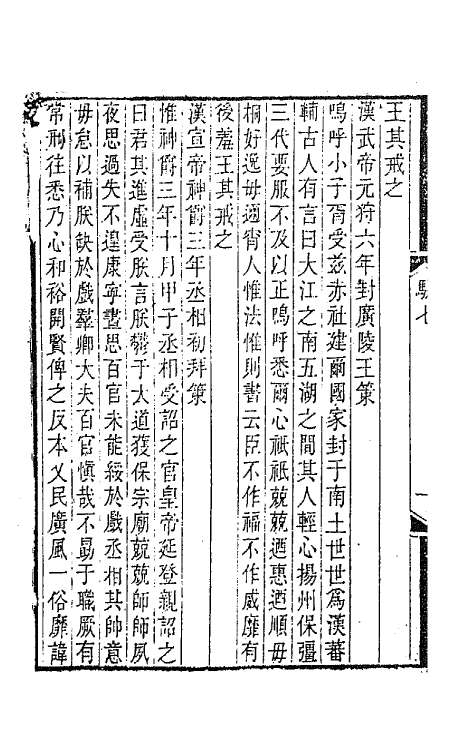 王其戒之
漢武帝元狩六年封廣陵王策
嗚呼小子胥受茲赤社建爾國家封于南土世世爲漢蕃
輔古人有言曰大江之南五湖之間其人輕心揚州保彊
三代要服不及以正嗚呼悉爾心祇祇兢兢迺惠迺順毋
桐好逸毋邇宵人惟法惟則書云臣不作福不作威靡有
後羞王其戒之
漢宣帝神爵三年丞相初拜策
惟神爵三年十月甲子丞相受詔之官皇帝延登親詔之
曰君其進虛受朕言朕鬱于大道獲保宗廟兢兢師師夙
夜思過失不遑康寧晝思百官未能綏於戲丞相其帥意
毋怠以補朕缺於戲羣卿大夫百官愼哉不勗于職厥有
常刑往悉乃心和裕開賢俾之反本乂民廣風一俗靡諱